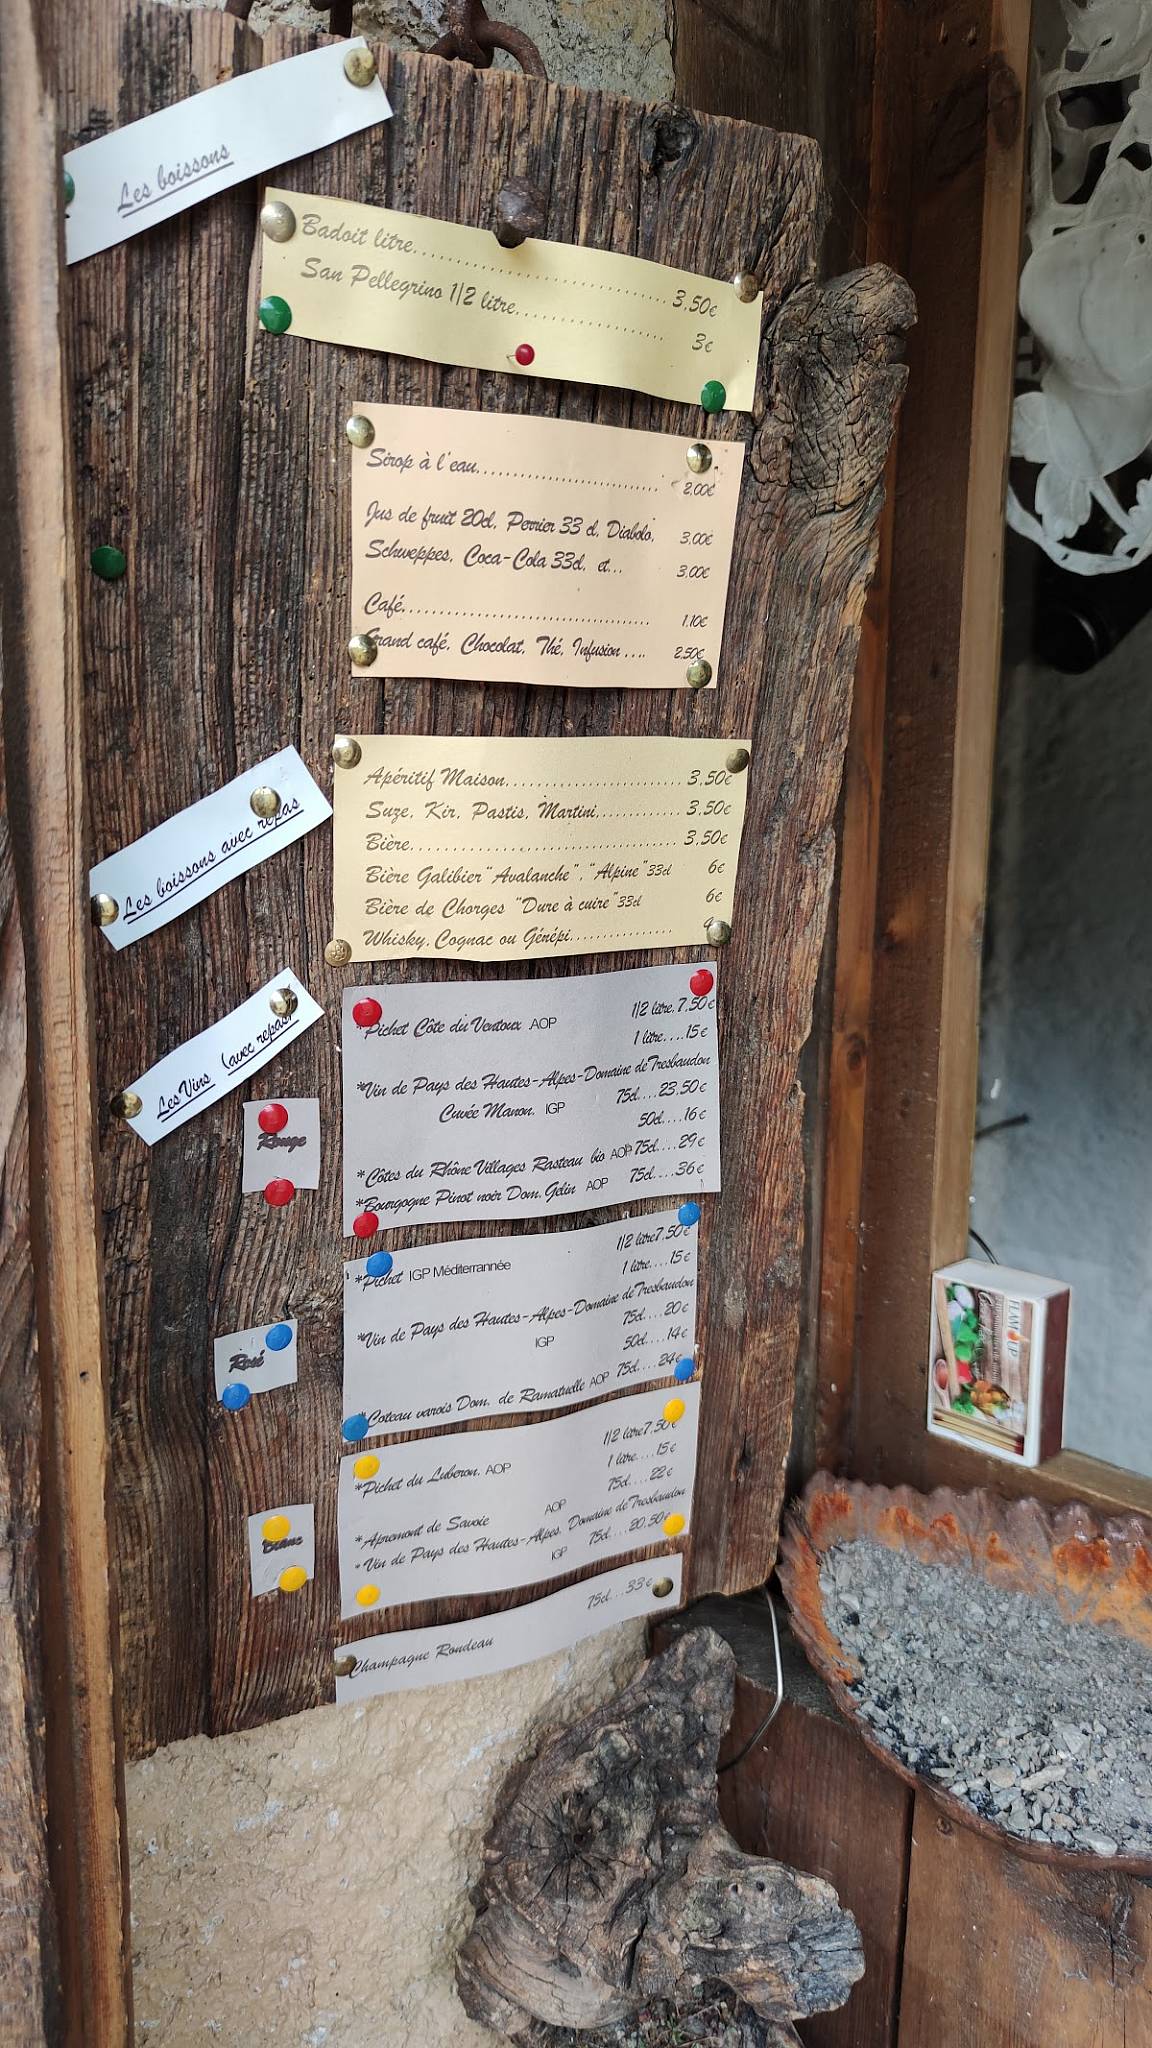 Les boissons
Badoit litre.......................... 3,50€
San Pellegrino 1/2 litre.................. 3€
Sirop à l'eau.............................. 2.00€
Jus de fruit 20cl, Perrier 33 cl, Diabolo, 3.00€
Schweppes, Coca-Cola 33cl, et... 3.00€
Café........................................ 1.10€
Grand café, Chocolat, Thé, Infusion .... 2.50€
Les boissons avec repas
Apéritif Maison......................... 3,50€
Suze, Kir, Pastis, Martini............. 3,50€
Bière....................................... 3,50€
Bière Galibier "Avalanche", "Alpine" 33cl 6€
Bière de Chorges "Dure à cuire" 33cl 6€
Whisky, Cognac ou Génépi...............
Les Vins (avec repas)
Rouge
*Pichet Côte du Ventoux AOP 1/2 litre. 7,50€
1 litre....15€
*Vin de Pays des Hautes-Alpes-Domaine de Tresbaudon
Cuvée Manon, IGP 75cl....23,50€
50cl....16€
*Côtes du Rhône Villages Rasteau bio AOP 75cl....29€
*Bourgogne Pinot noir Dom. Gelin AOP 75cl....36€
Rosé
*Pichet IGP Méditerrannée 1/2 litre7,50€
1 litre....15€
*Vin de Pays des Hautes-Alpes-Domaine de Tresbaudon
IGP 75cl....20€
50cl....14€
*Coteau varois Dom. de Ramatuelle AOP 75cl....24€
Blanc
*Pichet du Luberon, AOP 1/2 litre7,50€
1 litre....15€
*Apremont de Savoie AOP 75cl....22€
*Vin de Pays des Hautes-Alpes, Domaine de Tresbaudon
IGP 75cl....20,50€
Champagne Rondeau 75cl...33€
FLAM'UP